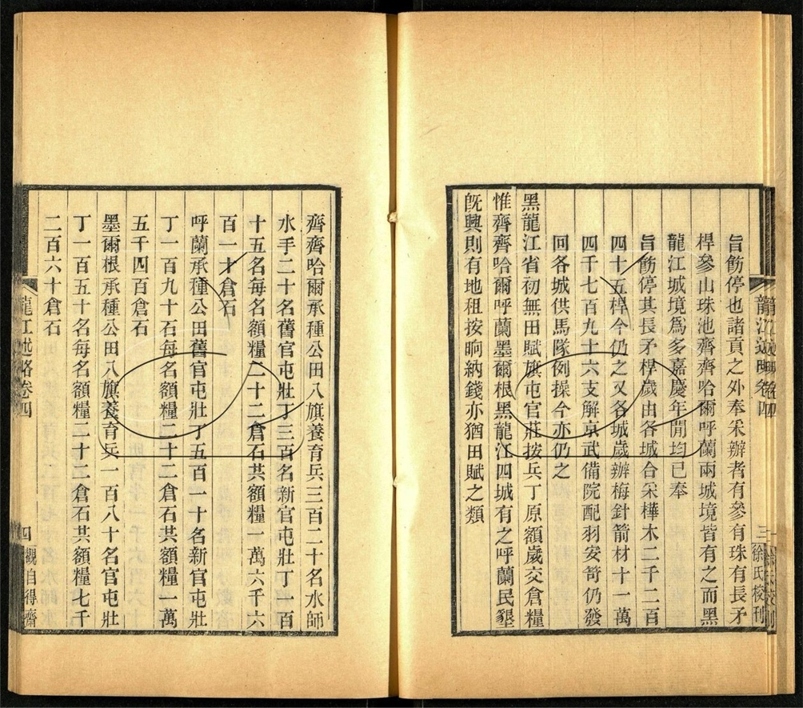 旨飭停也諸貢之外奉釆辦者有參有珠有長矛
桿參山珠池齊齊哈爾呼蘭兩城境皆有之而黑
龍江城境爲多嘉慶年閒均已奉
旨飭停其長矛桿歲由各城合釆樺木二千二百
四十五桿今仍之又各城歲辦梅針箭材十一萬
四千七百九十六支解京武備院配羽安笴仍發
回各城供馬隊例操今亦仍之
黑龍江省初無田賦旗屯官莊按兵丁原額歲交倉糧
惟齊齊哈爾呼蘭墨爾根黑龍江四城有之呼蘭民墾
旣興則有地租按晌納錢亦猶田賦之類
徐氏校刊
齊齊哈爾承種公田八旗養育兵三百二十名水師
水手二十名舊官屯壯丁三百名新官屯壯丁一百
十五名每名額糧二十二倉石共額糧一萬六千六
百一十倉石
呼蘭承種公田舊官屯壯丁五百一十名新官屯壯
丁一百九十石每名額糧二十二倉石共額糧一萬
五千四百倉石
墨爾根承種公田八旗養育兵一百八十名官屯壯
丁一百五十名每名額糧二十二倉石共額糧七千
二百六十倉石
龍江述略卷四
四
觀自得齋